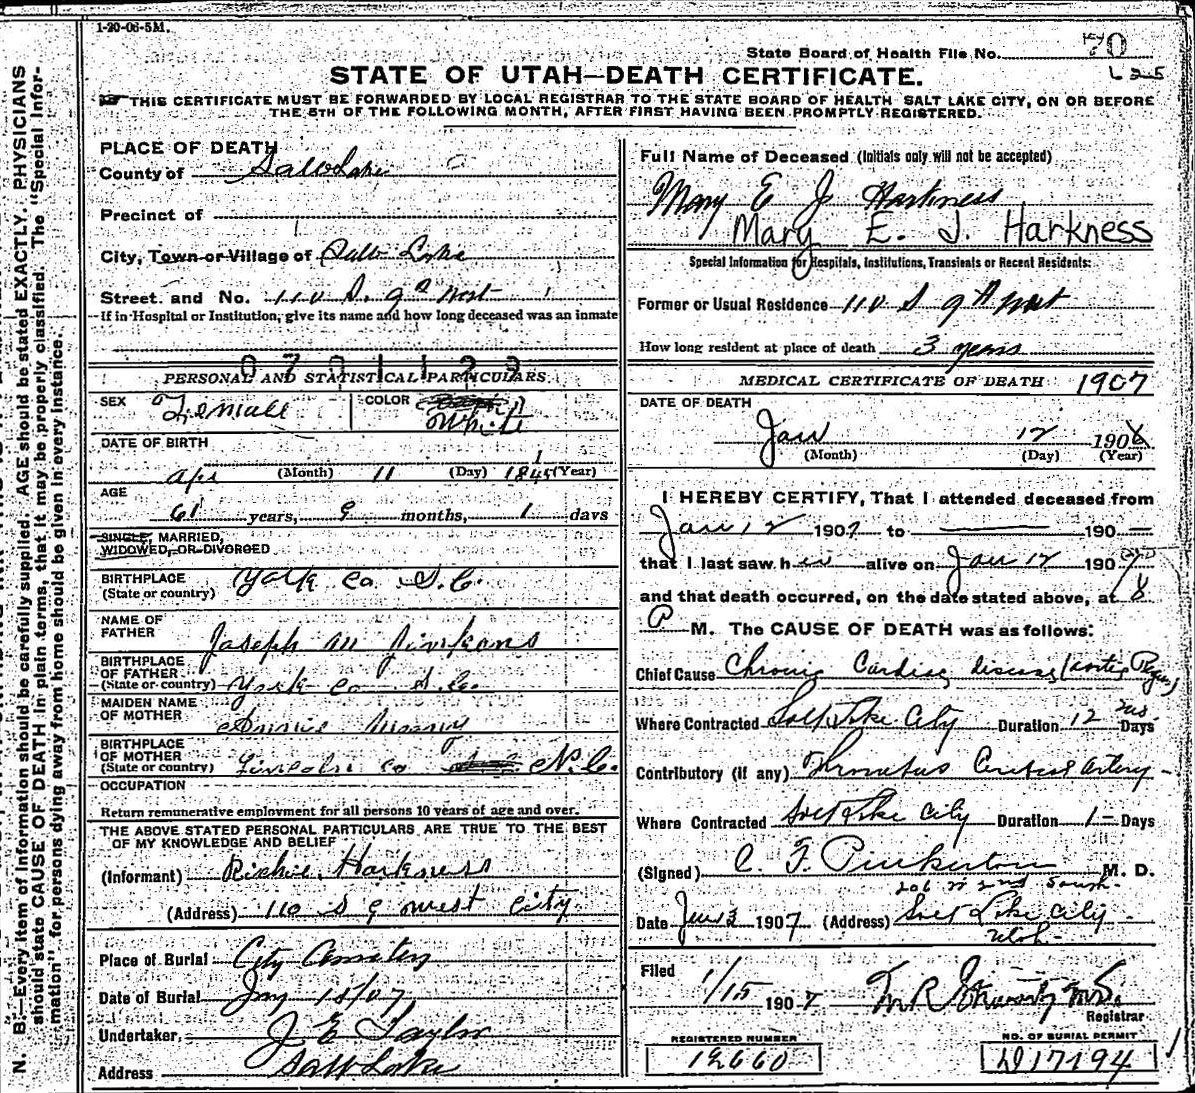 1-20-06-5M.
State Board of Health File No. 70
625
STATE OF UTAH—DEATH CERTIFICATE.
THIS CERTIFICATE MUST BE FORWARDED BY LOCAL REGISTRAR TO THE STATE BOARD OF HEALTH SALT LAKE CITY, ON OR BEFORE
THE 5TH OF THE FOLLOWING MONTH, AFTER FIRST HAVING BEEN PROMPTLY REGISTERED.
N. B.—Every item of information should be carefully supplied. AGE should be stated EXACTLY. PHYSICIANS
should state CAUSE OF DEATH in plain terms, that it may be properly classified. The "Special Infor-
mation" for persons dying away from home should be given in every instance.
PLACE OF DEATH
County of Salt Lake
Precinct of
City, Town or Village of Salt Lake
Street and No. 110 S. 9th West
If in Hospital or Institution, give its name and how long deceased was an inmate
0701123
PERSONAL AND STATISTICAL PARTICULARS
SEX Female COLOR White
DATE OF BIRTH
Apr (Month) 11 (Day) 1845 (Year)
AGE
61 years, 9 months, 1 days
SINGLE, MARRIED,
WIDOWED, OR DIVORCED
BIRTHPLACE
(State or country) York Co. S.C.
NAME OF
FATHER Joseph M
BIRTHPLACE
OF FATHER
(State or country) York Co S.C.
MAIDEN NAME
OF MOTHER
BIRTHPLACE
OF MOTHER
(State or country) Lincoln Co N.C.
OCCUPATION
Return remunerative employment for all persons 10 years of age and over.
THE ABOVE STATED PERSONAL PARTICULARS ARE TRUE TO THE BEST
OF MY KNOWLEDGE AND BELIEF
(Informant) Richie Harkness
(Address) 110 S 9 West City
Place of Burial City Cemetery
Date of Burial Jany 15/07
Undertaker, J E Taylor
Address Salt Lake
Full Name of Deceased (Initials only will not be accepted)
Mary E J Harkness
Mary E. J. Harkness
Special Information for Hospitals, Institutions, Transients or Recent Residents:
Former or Usual Residence 110 S 9th West
How long resident at place of death 3 years
MEDICAL CERTIFICATE OF DEATH 1907
DATE OF DEATH
Jan 12 1906
(Month) (Day) (Year)
I HEREBY CERTIFY, That I attended deceased from
Jan 12 1907 to 190
that I last saw h er alive on Jan 12 1907
and that death occurred, on the date stated above, at 8
P M. The CAUSE OF DEATH was as follows:
Chief Cause Chronic Cardiac disease
Where Contracted Salt Lake City Duration 12 Days
Contributory (if any) Artery
Where Contracted Salt Lake City Duration 1 Days
(Signed) C. F. Pinkerton M. D.
2nd South
Date 1907 (Address) Salt Lake City
Utah
Filed
1/15 1907 M.D.
Registrar
REGISTERED NUMBER
12660
NO. OF BURIAL PERMIT
D17194